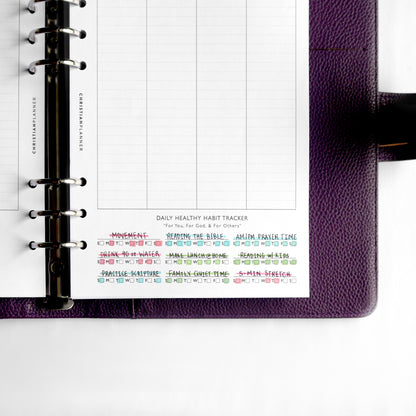 CHRISTIANPLANNER
CHRISTIANPLANNER
DAILY HEALTHY HABIT TRACKER
"For You, For God, & For Others"
MOVEMENT READING THE BIBLE AM/PM PRAYER TIME
DRINK 90 oz WATER MAKE LUNCH @ HOME READING w/ KIDS
PRACTICE SCRIPTURE FAMILY QUIET TIME 5-MIN STRETCH